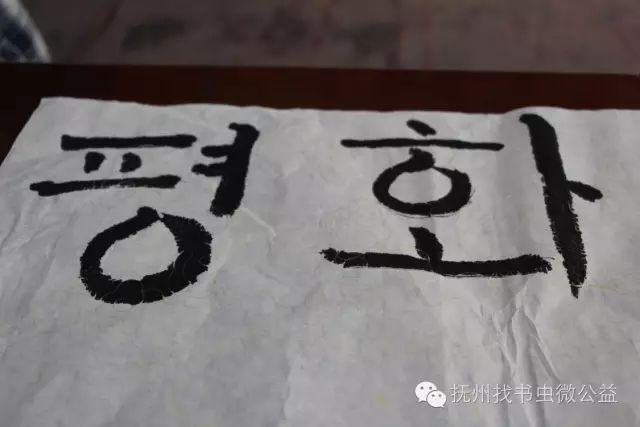 평화
抚州找书虫微公益